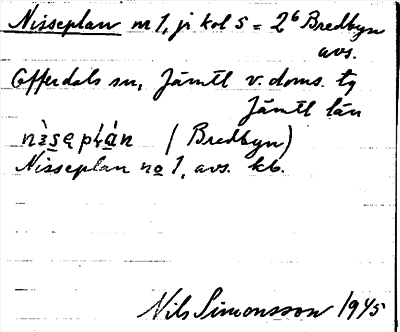 Nisseplan nr 1, jr kol 5 = 2⁶ Bredbyn
avs.
Offerdals sn, Jämtl v. doms. tg
Jämtl län
(Bredbyn)
Nisseplan no 1, avs. kb.
Nils Simonsson 1945